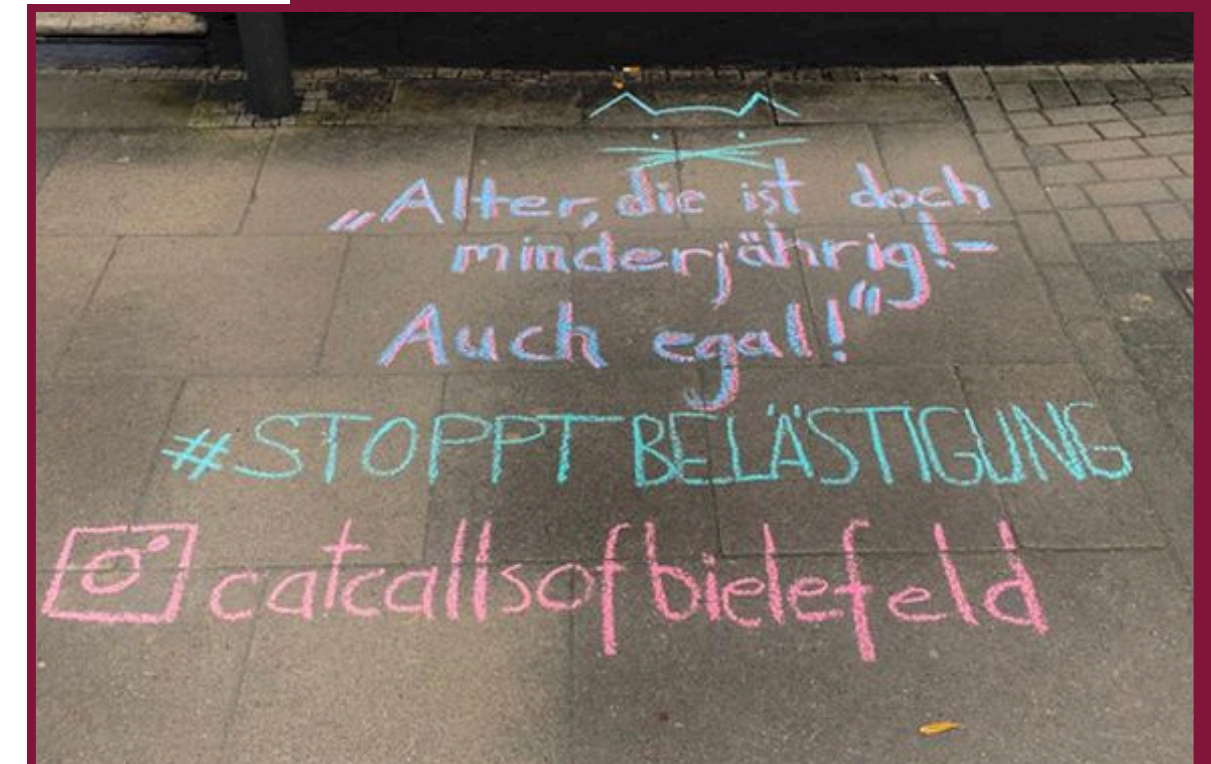 „Alter, die ist doch
minderjährig!-
Auch egal!“
#STOPPT BELÄSTIGUNG
catcallsofbielefeld